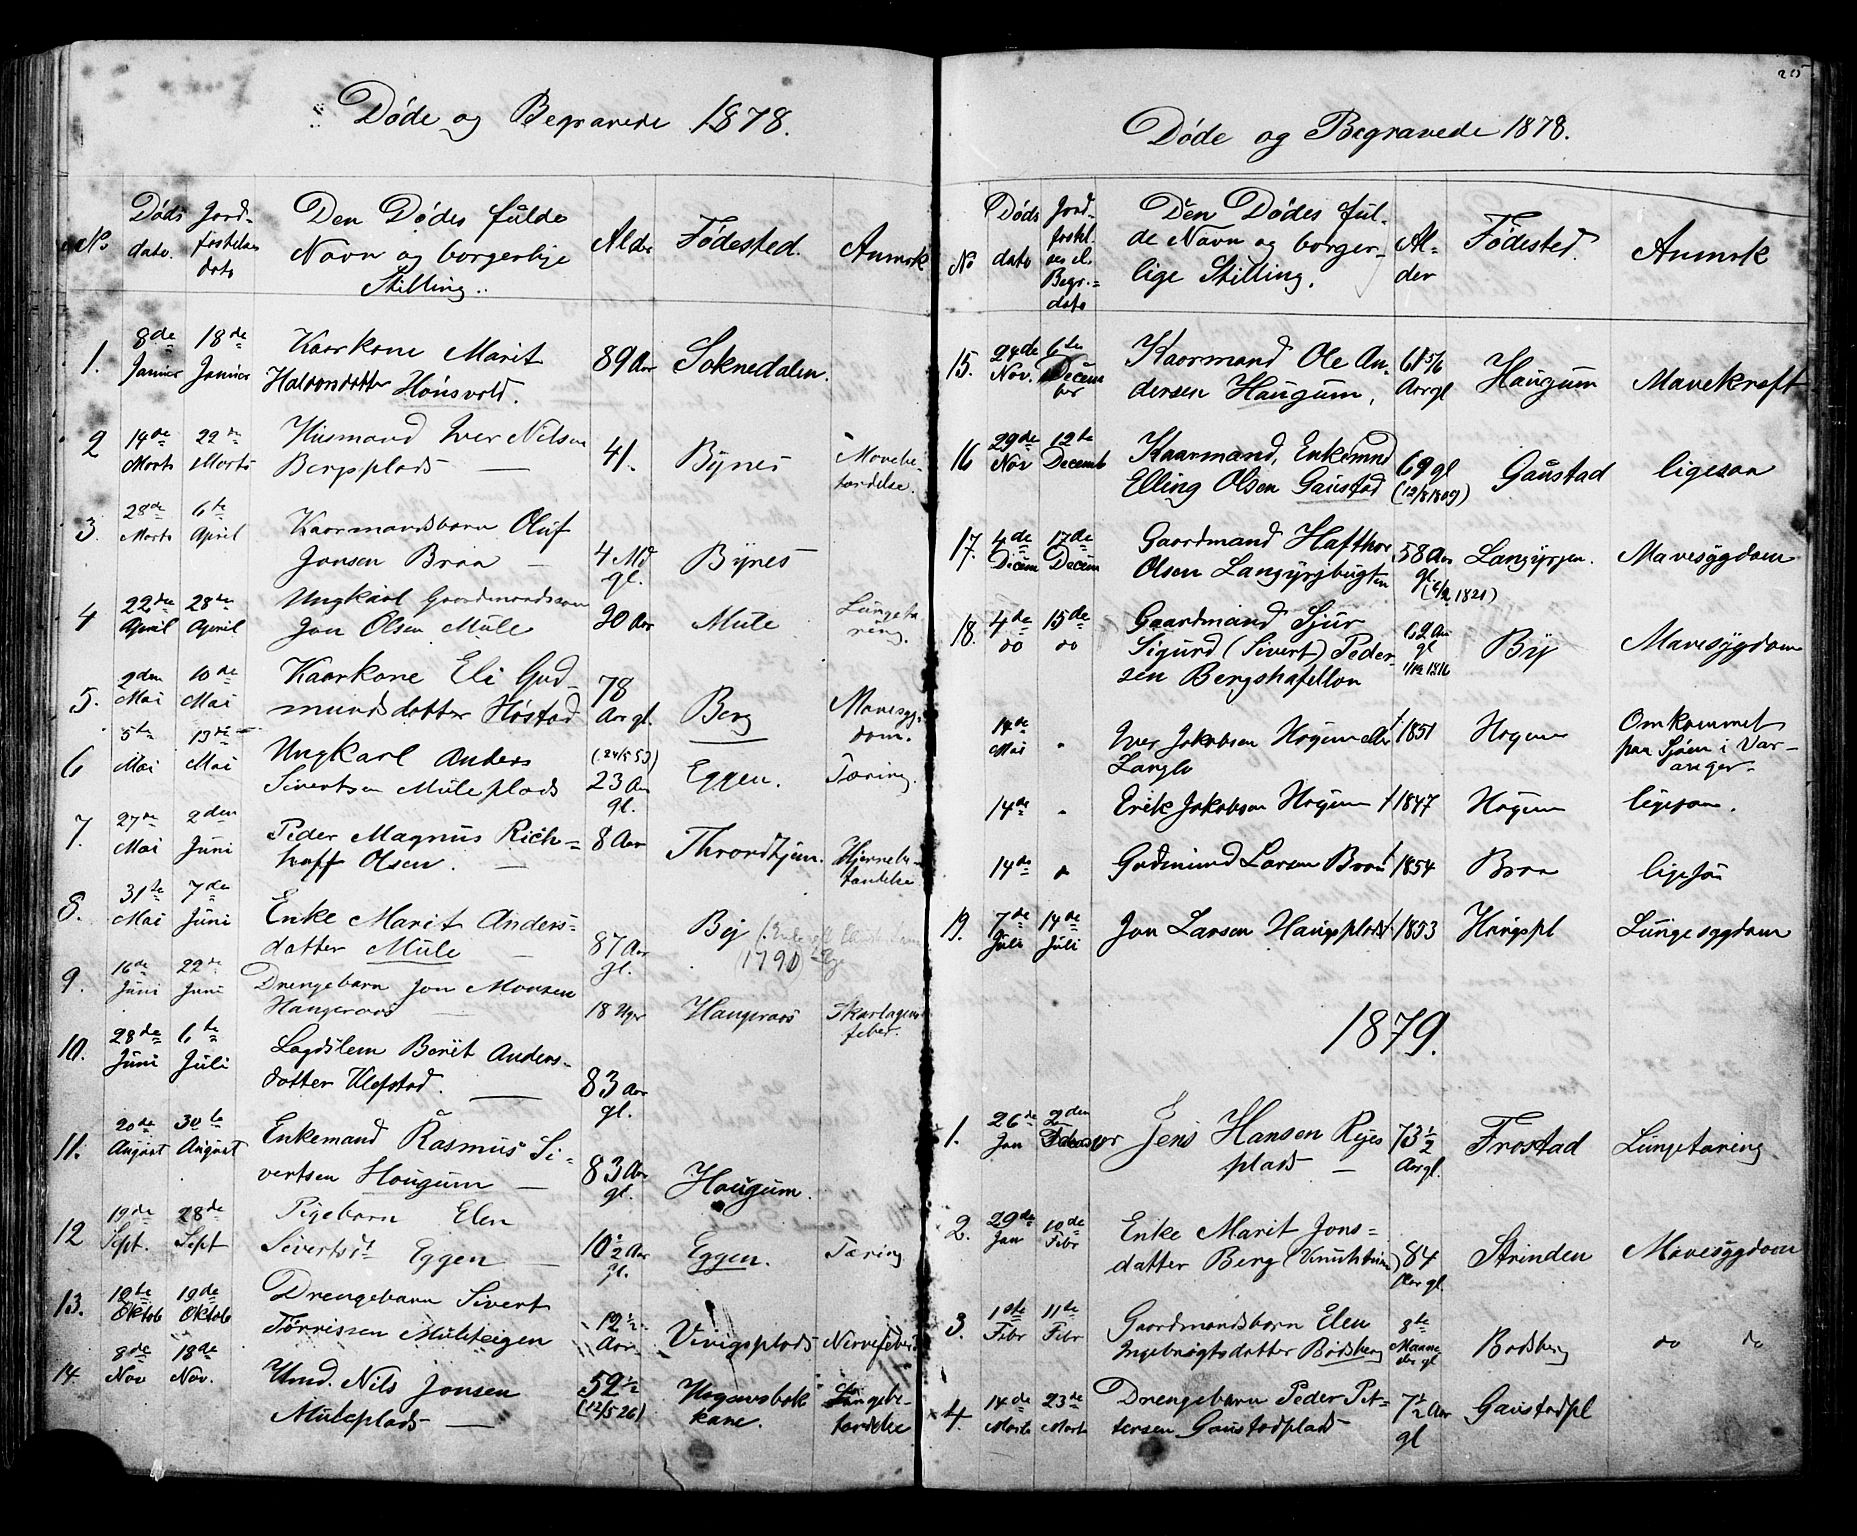 Døde og Begravede 1878.
No
Døds dato.
Jordfæstelses dato
Den Dødes fulde Navn og borgerlige Stilling.
Alder
Fødested.
Anmærk
1. 8de Januar 18de Januar Kaarkone Marit Halvorsdatter Hønsvold. 89 Aar Soknedalen.
2 14de Marts 22de Marts Husmand Iver Nilsen Bergsplads — 41. Bynes Mavebetændelse.
3. 28de Marts 6te April Kaarmandsbarn Oluf Jonsen Braa — 4 Md gl. Bynes
4 22de April 28de April Ungkarl Gaardmandssøn Jon Olsen Mule 20 Aar Mule Lungetæring.
5. 2den Mai 10de Mai Kaarkone Eli Gudmundsdatter Høstad 78 Aar gl. Berg Mavesygdom.
6 5te Mai 13de Mai Ungkarl Anders Sivertsen Muleplads (24/5 53) 23 Aar gl. Eggen. Tæring.
7. 27de Mai 2den Juni Peder Magnus Richhoff Olsen. — 8 Aar Throndhjem. Hjernebetændelse
8. 31te Mai 7de Juni Enke Marit Andersdatter Mule — 87 Aar gl. By (1790)
9. 16de Juni 22de Juni Drengebarn Jon Monsen Haugeraas — 18 Uger Haugeraas Skarlagensfeber.
10. 28de Juni 6te Juli Lægdslem Berit Andersdatter Klefstad. — 83 Aar gl.
11. 20de August 30te August Enkemand Rasmus Sivertsen Hougum — 83 Aar gl. Hougum.
12 19de Sept. 28de Sept Pigebarn Elen Sivertsdt Eggen — 10½ Aar gl. Eggen. Tæring
13. 12te Oktob 19de Oktob Drengebarn Sivert Tørrissen Multeigen 12½ Aar Vivigsplads Nervefeber
14 8de Nov 18de Nov. Hmd. Nils Jonsen Muleplads — 52½ (12/5 26) Lungebetændelse
Døde og Begravede 1878.
No
Døds dato
Jordfæstelses el. Begr.= dato
Den Dødes fulde Navn og borgerlige Stilling.
Alder
Fødested.
Anmærk
15. 24de Nov. 6te December Kaarmand Ole Andersen Haugum, 61 5/6 Aar gl Haugum Mavekræft
16 29de Nov 12te Decemb Kaarmand, Enkemand Elling Olsen Gaustad 69 gl (12/8 1809) Gaustad ligesaa
17. 4de Decem 17de Decem Gaardmand Hafthor Olsen Langørjbugten 58 Aar gl ( 1821) Langørjen. Mavesygdom
18. 4de do 15de do Gaardmand Sjur Sigurd (Sivert) Pedersen Bergshafellen 62 Aar gl 1/12 1816 By Mavesygdom
14de Mai " Iver Jakobsen Hogum eller Langlo f 1851 Hogum Omkommet paa Sjøen i Varanger.
14de " Erik Jakobsen Hogum f 1847 Hogum ligesaa.
14de " Gudmund Larsen Braa f 1854 Braa ligesaa
19. 7de Juli 14de Juli Jon Larsen Haugsplads f 1853 Haugspl Lungesygdom
1879.
1. 26de Jan 2den Februar Jens Hansen Ryesplads — 73½ Aar gl. Frostad Lungetæring
2. 29de Jan 10de Febr Enke Marit Jonsdatter Berg 84 Aar gl. Strinden Mavesygdom
3. 1ste Febr 11te Febr Gaardmandsbarn Elen Ingebrigtsdatter Bødsberg 8te Maaneder gl Bødsberg do do
4. 14de Marts 23de Marts Drengebarn Peder Pettersen Gaustadplads 7½ Aar gl Gaustadpl